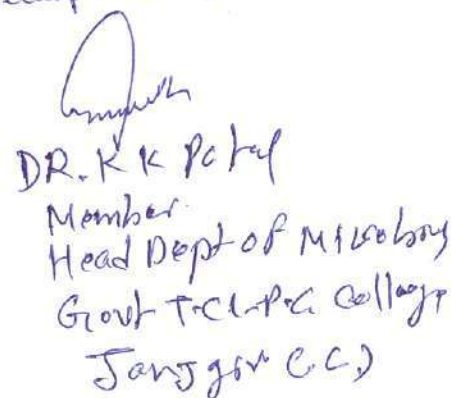 DR. K K Patel
Member
Head Dept of Microbiology
Govt T.C.L.P.G. College
Janjgir (C.G.)